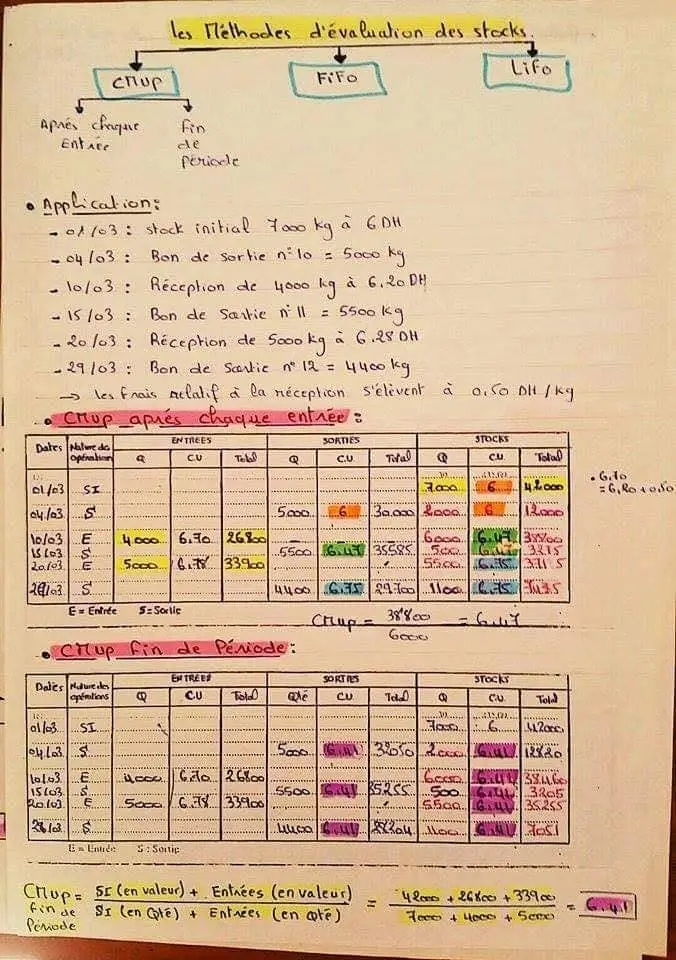 les Méthodes d'évaluation des stocks.
CMUP FiFo LiFo
Aprés chaque Entrée
Fin de période
• Application:
- 01/03 : stock initial 7000 kg à 6 DH
- 04/03 : Bon de sortie n° 10 = 5000 kg
- 10/03 : Réception de 4000 kg à 6,20 DH
- 15/03 : Bon de Sortie n° 11 = 5500 kg
- 20/03 : Réception de 5000 kg à 6.28 DH
- 29/03 : Bon de Sortie n° 12 = 4400 kg
→ les frais relatif à la réception s'élèvent à 0,50 DH / kg
• CMUP aprés chaque entrée :
Dates Nature des opérations ENTREES SORTIES STOCKS
Q C.U Total Q C.U Total Q C.U Total
01/03 SI 7000 6 42000
04/03 S 5000 6 30.000 2000 6 12000
10/03 E 4000 6.70 26800 6000 6.47 38800
15/03 S 5500 6.47 35585 500 6.47 3215
20/03 E 5000 6.78 33900 5500 6.75 37115
29/03 S 4400 6.75 29700 1100 6.75
• 6.70
= 6,20 + 0,50
E = Entrée S = Sortie
CMUP = 38800 / 6000 = 6.47
• CMUP fin de Période :
Dates Nature des opérations ENTREES SORTIES STOCKS
Q C.U Total Qté CU Total Q C.U. Total
01/03 SI 7000 6 42000
04/03 S 5000 6.41 32050 2000 6.41 12820
10/03 E 4000 6.70 26800 6000 6.41 38460
15/03 S 5500 6.41 35255 500 6.41 3205
20/03 E 5000 6.78 33900 5500 6.41 35255
29/03 S 4400 6.41 28204 1100 6.41 7051
E = Entrée S : Sortie
CMUP fin de Période = SI (en valeur) + Entrées (en valeur) / SI (en Qté) + Entrées (en Qté) = 42000 + 26800 + 33900 / 7000 + 4000 + 5000 = 6.41